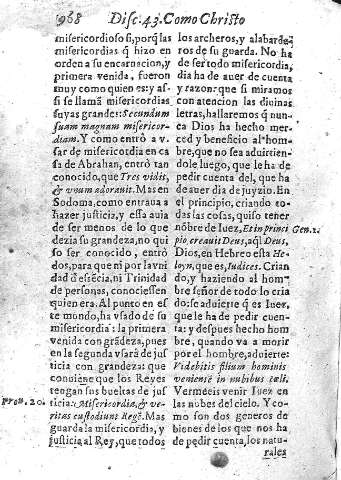 968 Disc. 43. Como Christo
misericordioso si, porq̃ las
misericordias q̃ hizo en
orden a su encarnacion, y
primera venida, fueron
muy como quien es: y as-
si se llamã misericordias
suyas grandes: Secundum
suam magnam misericor-
diam. Y como entrò a v-
sar de misericordia en ca
sa de Abrahan, entrò tan
conocido, que Tres vidit,
& vnum adorauit. Mas en
Sodoma, como entraua a
hazer justicia, y essa auia
de ser menos de lo que
dezia su grandeza, no qui
so ser conocido, entrò
dos, para que ni por la vni
dad d̃ essẽcia, ni Trinidad
de personas, conociessen
quien era. Al punto en es
te mondo, ha vsado de su
misericordia: la primera
venida con grãdeza, pues
en la segunda vsarà de jus
ticia con grandeza: que
conuiene que los Reyes
tengan sus bueltas de jus
prou. 20. ticia: Misericordia, & ve-
ritas custodiunt Regẽ. Mas
guarda la misericordia, y
justicia al Rey, que todos
los archeros, y alabarde
ros de su guarda. No ha
de ser todo misericordia,
dia ha de auer de cuenta
y razon: que si miramos
con atencion las diuinas
letras, hallaremos q̃ nun-
ca Dios ha hecho mer-
ced y beneficio al hom-
bre, que no sea aduirtien-
dole luego, que le ha de
pedir cuenta del, que ha
de auer dia de juyzio. En
el principio, criando to-
das las cosas, quiso tener
nõbre de Iuez, Et in princi Gen. 1.
pio creauit Deus, aq̃l Deus,
Dios, en Hebreo esta He-
loyn, que es, Iudices. Crian
do, y haziendo al hom
bre señor de todo lo cria
do: se aduierte q̃ es Iuez,
que le ha de pedir cuen-
ta: y despues hecho hom
bre, quando va a morir
por el hombre, aduierte:
Videbitis filium hominis
venientẽ in nubibus cæli.
Vermeeis venir Iuez en
las nubes del cielo. Y co-
mo son dos generos de
bienes de los que nos ha
de pedir cuenta, los natu-
rales